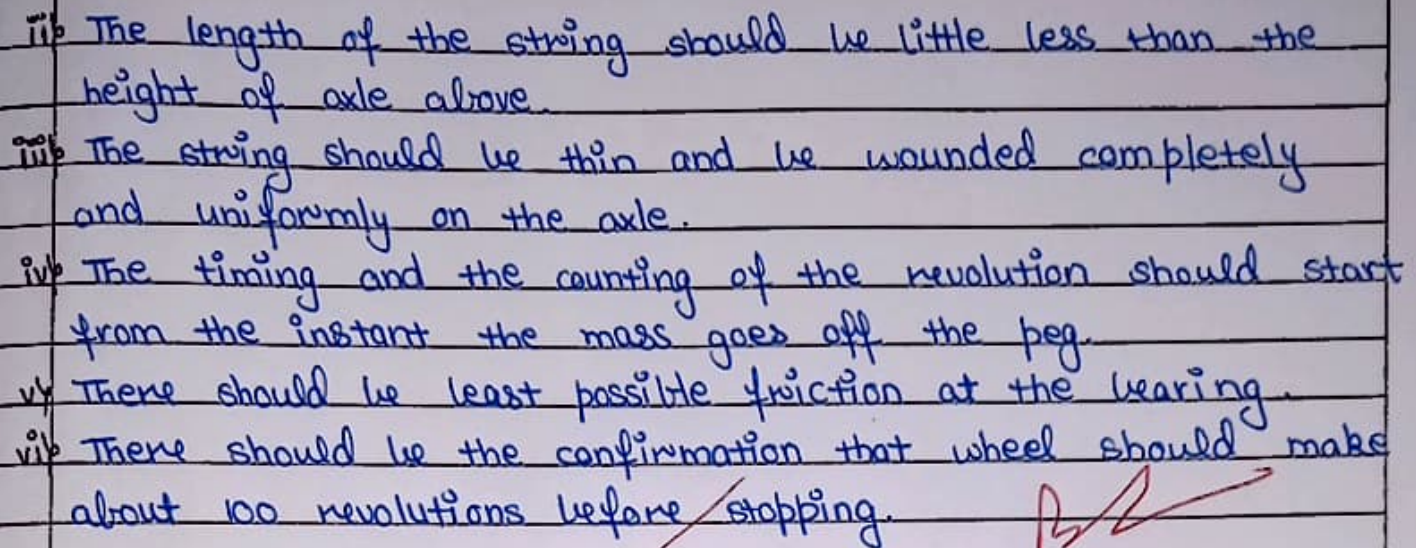 ii) The length of the string should be little less than the
height of axle above.
iii) The string should be thin and be wounded completely
and uniformly on the axle.
iv) The timing and the counting of the revolution should start
from the instant the mass goes off the peg.
v) There should be least possible friction at the bearing.
vi) There should be the confirmation that wheel should make
about 100 revolutions before stopping.